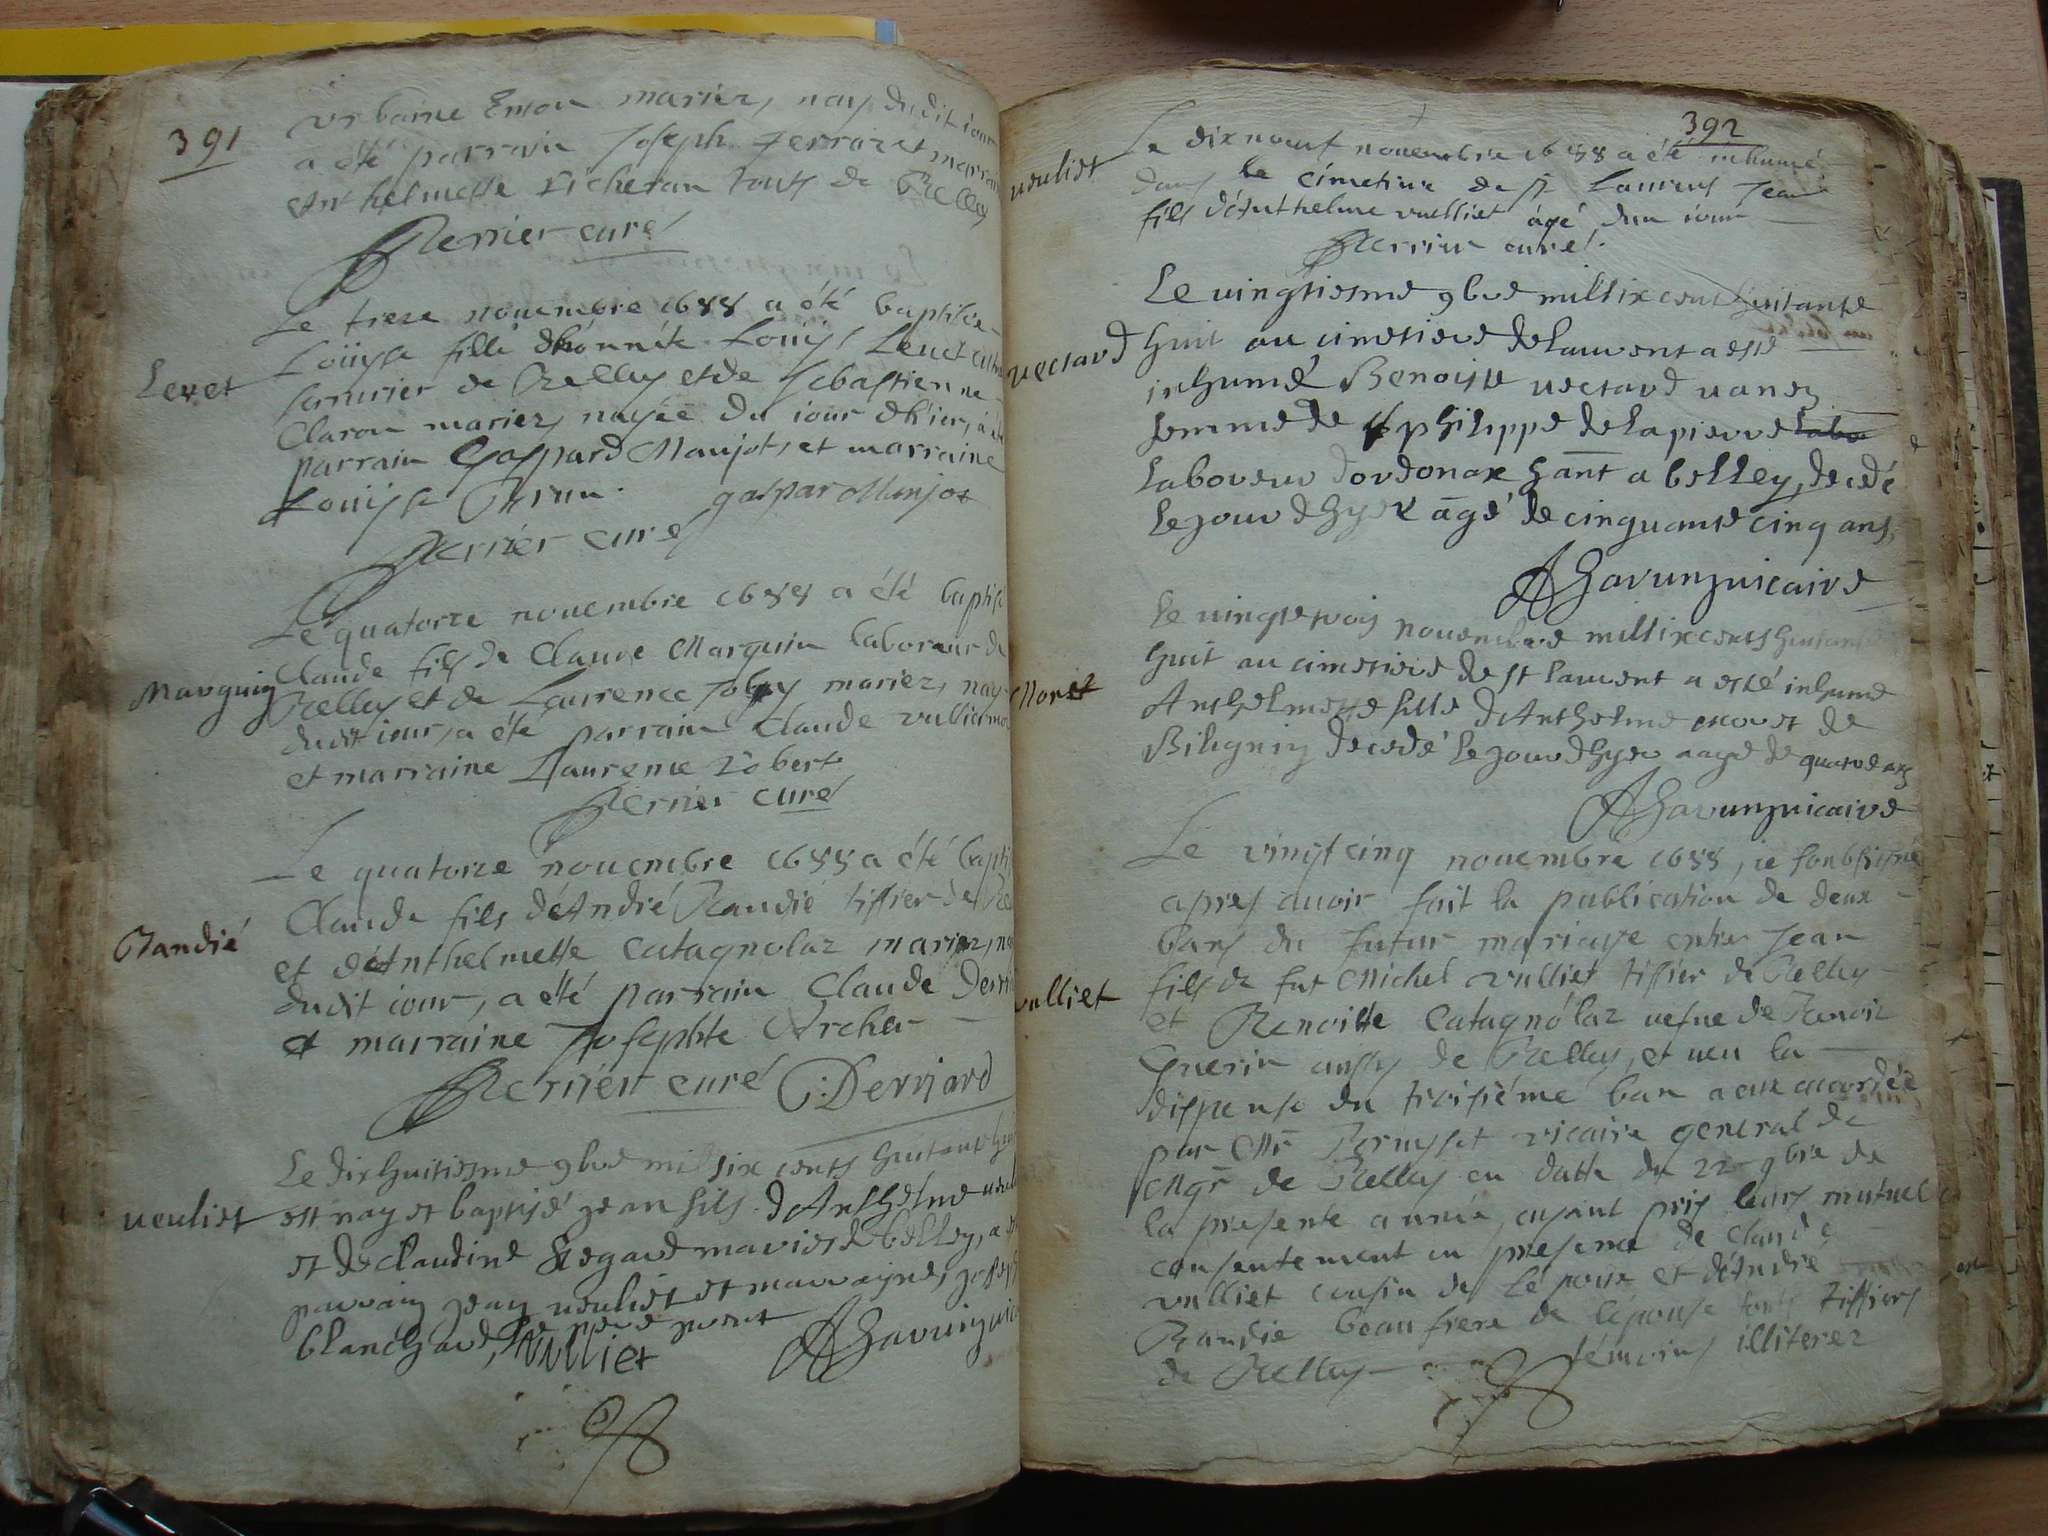 391
urbaine Emon mariez, nay dudit iour
a été parrain Joseph Terraz et marrai
Anthelmette Richeran touts de Belley
Perrier curé
Le treze nouembre 1688 a été baptisée
Louyse fille d'honnéte Louys Leuet
Levet
serrurier de Belley et de Sebastienne
Claron mariez, nayée du iour d'hier, a
parrain Gaspard Maujot, et marraine
Louyse
gaspar Maujot
Perrier curé
Le quatorze nouembre 1688 a été baptisé
Claude fils de Claude Marquin laboreur de
Marquin
Belley et de Laurence mariez, nay
dudit iour, a été parrain Claude
et marraine Laurence Robert
Perrier curé
Le quatorze nouembre 1688 a été bapti
Claude fils d'André Randié tissier de Bel
Randié
et d'Anthelmette Catagnolaz mariez, na
dudit iour, a été parrain Claude Derri
et marraine Josephte Archer
Perrier curé C: Derriard
Le dixhuitiesme 9bre mil six cents huitante hui
ueuliet
est nay et baptisé jean fils d'Anthelme ueul
et de claudine Regard maries de belley, a
parrain jean ueuliet et marrayne, josept
blanchard, le pere
J Vulliet
AHavunguica
392
Le dixneuf nouembre 1688 a été inhumé
ueuliet
dans le cimetiere de st Laurens Jean
fils d'Anthelme vulliet âgé d'un iour
Perrier curé.
Le uingtiesme 9bre mil six cent huitante
huit au cimetiere de laurent a esté
uectard
inhumé Benoiste uectard
femme de philippe de lapierre
laboreur dordonax hant a belley, decedé
le jour dhyer âgé de cinquante cinq ans,
Le uingtetrois nouembre mil six cents huitante
huit au cimetiere de st laurent a esté inhumé
Moret
Anthelmette fille d'Anthelme moret de
Bilignin decedé le jour dhyer aagé de quatre ans
Le vingt cinq nouembre 1688, ie soubsigné
apres auoir fait la publication de deux
bans du futur mariage entre Jean
fils de fut Michel vulliet tissier de Belley
vulliet
et Benoitte Catagnolaz uefue de Benoit
Guerin aussy de Belley, et ueu la
dispense du troisiéme ban a eux accordée
par Mr vicaire general de
Mgr de Belley en datte du 22 9bre de
la presente année, ayant pris leurs mutuel
consentement en presence de Claude
vulliet cousin de l'époux et d'André
Randié beau frere de l'épouse touts tissiers
de Belley témoins illiterez